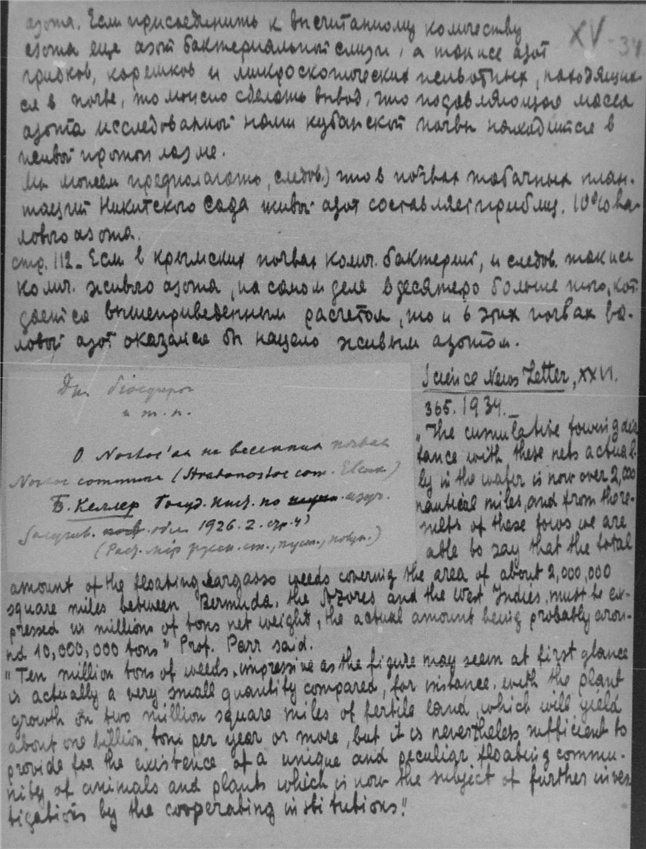 азота. Если присоединить к высчитанному количеству
азота еще азот бактериальной слизи, а также азот
грибков, корешков и микроскопических животных, находящих-
ся в почве, то можно сделать вывод, что подавляющая масса
азота исследованной нами кубанской почвы находится в
живой протоплазме.
XV-34
Мы можем предполагать, следов.) что в почвах табачных план-
таций Никитского Сада живой азот составляет приблиз. 10% ва-
лового азота.
стр. 112_ Если в крымских почвах колич. бактерий, и следов. также
колич. живого азота, на самом деле в десятеро больше того, кот.
дается вышеприведенным расчетом, то и в этих почвах ва-
ловой азот оказался бы нацело живым азотом.
Для биосферы
и т. п.
О Nostoc'ах на весенних почвах
Nostoc commune (Stratonostoc com. Elenk)
Б. Келлер
1926. 2. стр. 4)
Science News Letter, XXVI.
365. 1934._
"The cumulative towing dis-
tance with these nets actual-
ly in the water is now over 2,000
nautical miles, and from the re-
sults of these tows we are
able to say that the total
amount of the floating Sargasso weeds covering the area of about 2,000,000
square miles between Bermuda, the Azores and the West Indies, must be ex-
pressed in millions of tons net weight, the actual amount being probably arou-
nd 10,000,000 tons" Prof. Parr said.
"Ten million tons of weeds, impressive as the figure may seem at first glance
is actually a very small quantity compared, for instance, with the plant
growth on two million square miles of fertile land, which will yield
about one billion tons per year or more, but it is nevertheless sufficient to
provide for the existence of a unique and peculiar floating commu-
nity of animals and plants which is now the subject of further inves-
tigations by the cooperating institutions."